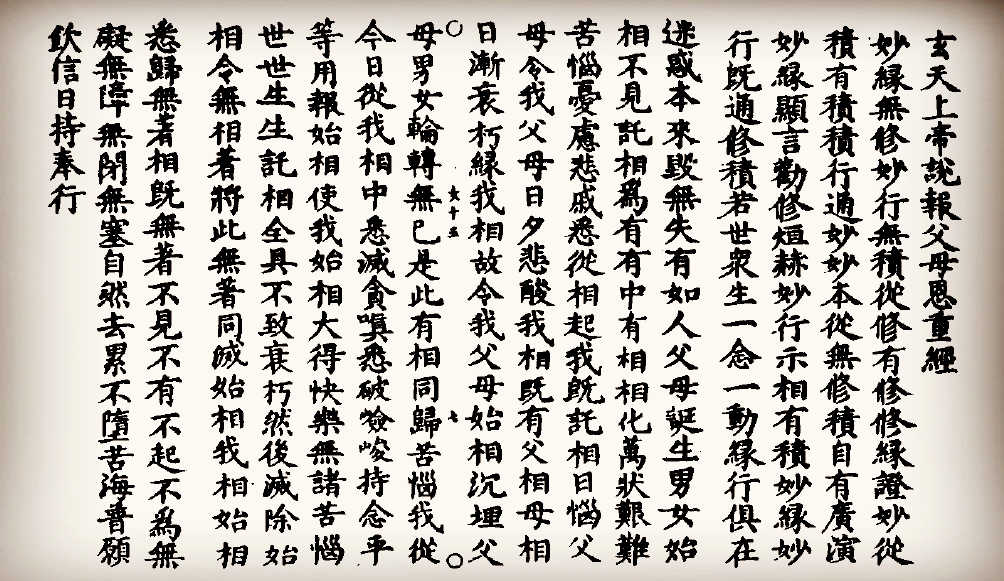 玄天上帝說報父母恩重經
妙緣無修妙行無積從修有修修緣證妙從
積有積積行通妙妙本從無修積自有廣演
妙緣顯言勸修烜赫妙行示相有積妙緣妙
行既通修積若世衆生一念一動緣行俱在
迷惑本來毀無失有如人父母誕生男女始
相不見託相爲有有中有相相化萬狀艱難
苦惱憂慮悲戚悉從相起我既託相日惱父
母令我父母日夕悲酸我相既有父相母相
日漸衰朽緣我相故令我父母始相沉埋父
女十五
七
母男女輪轉無已是此有相同歸苦惱我從
今日從我相中悉滅貪嗔悉破嶮峻持念平
等用報始相使我始相大得快樂無諸苦惱
世世生生託相全具不致衰朽然後滅除始
相令無相著將此無著同滅始相我相始相
悉歸無著相既無著不見不有不起不爲無
礙無障無閉無塞自然去累不墮苦海普願
欽信日持奉行